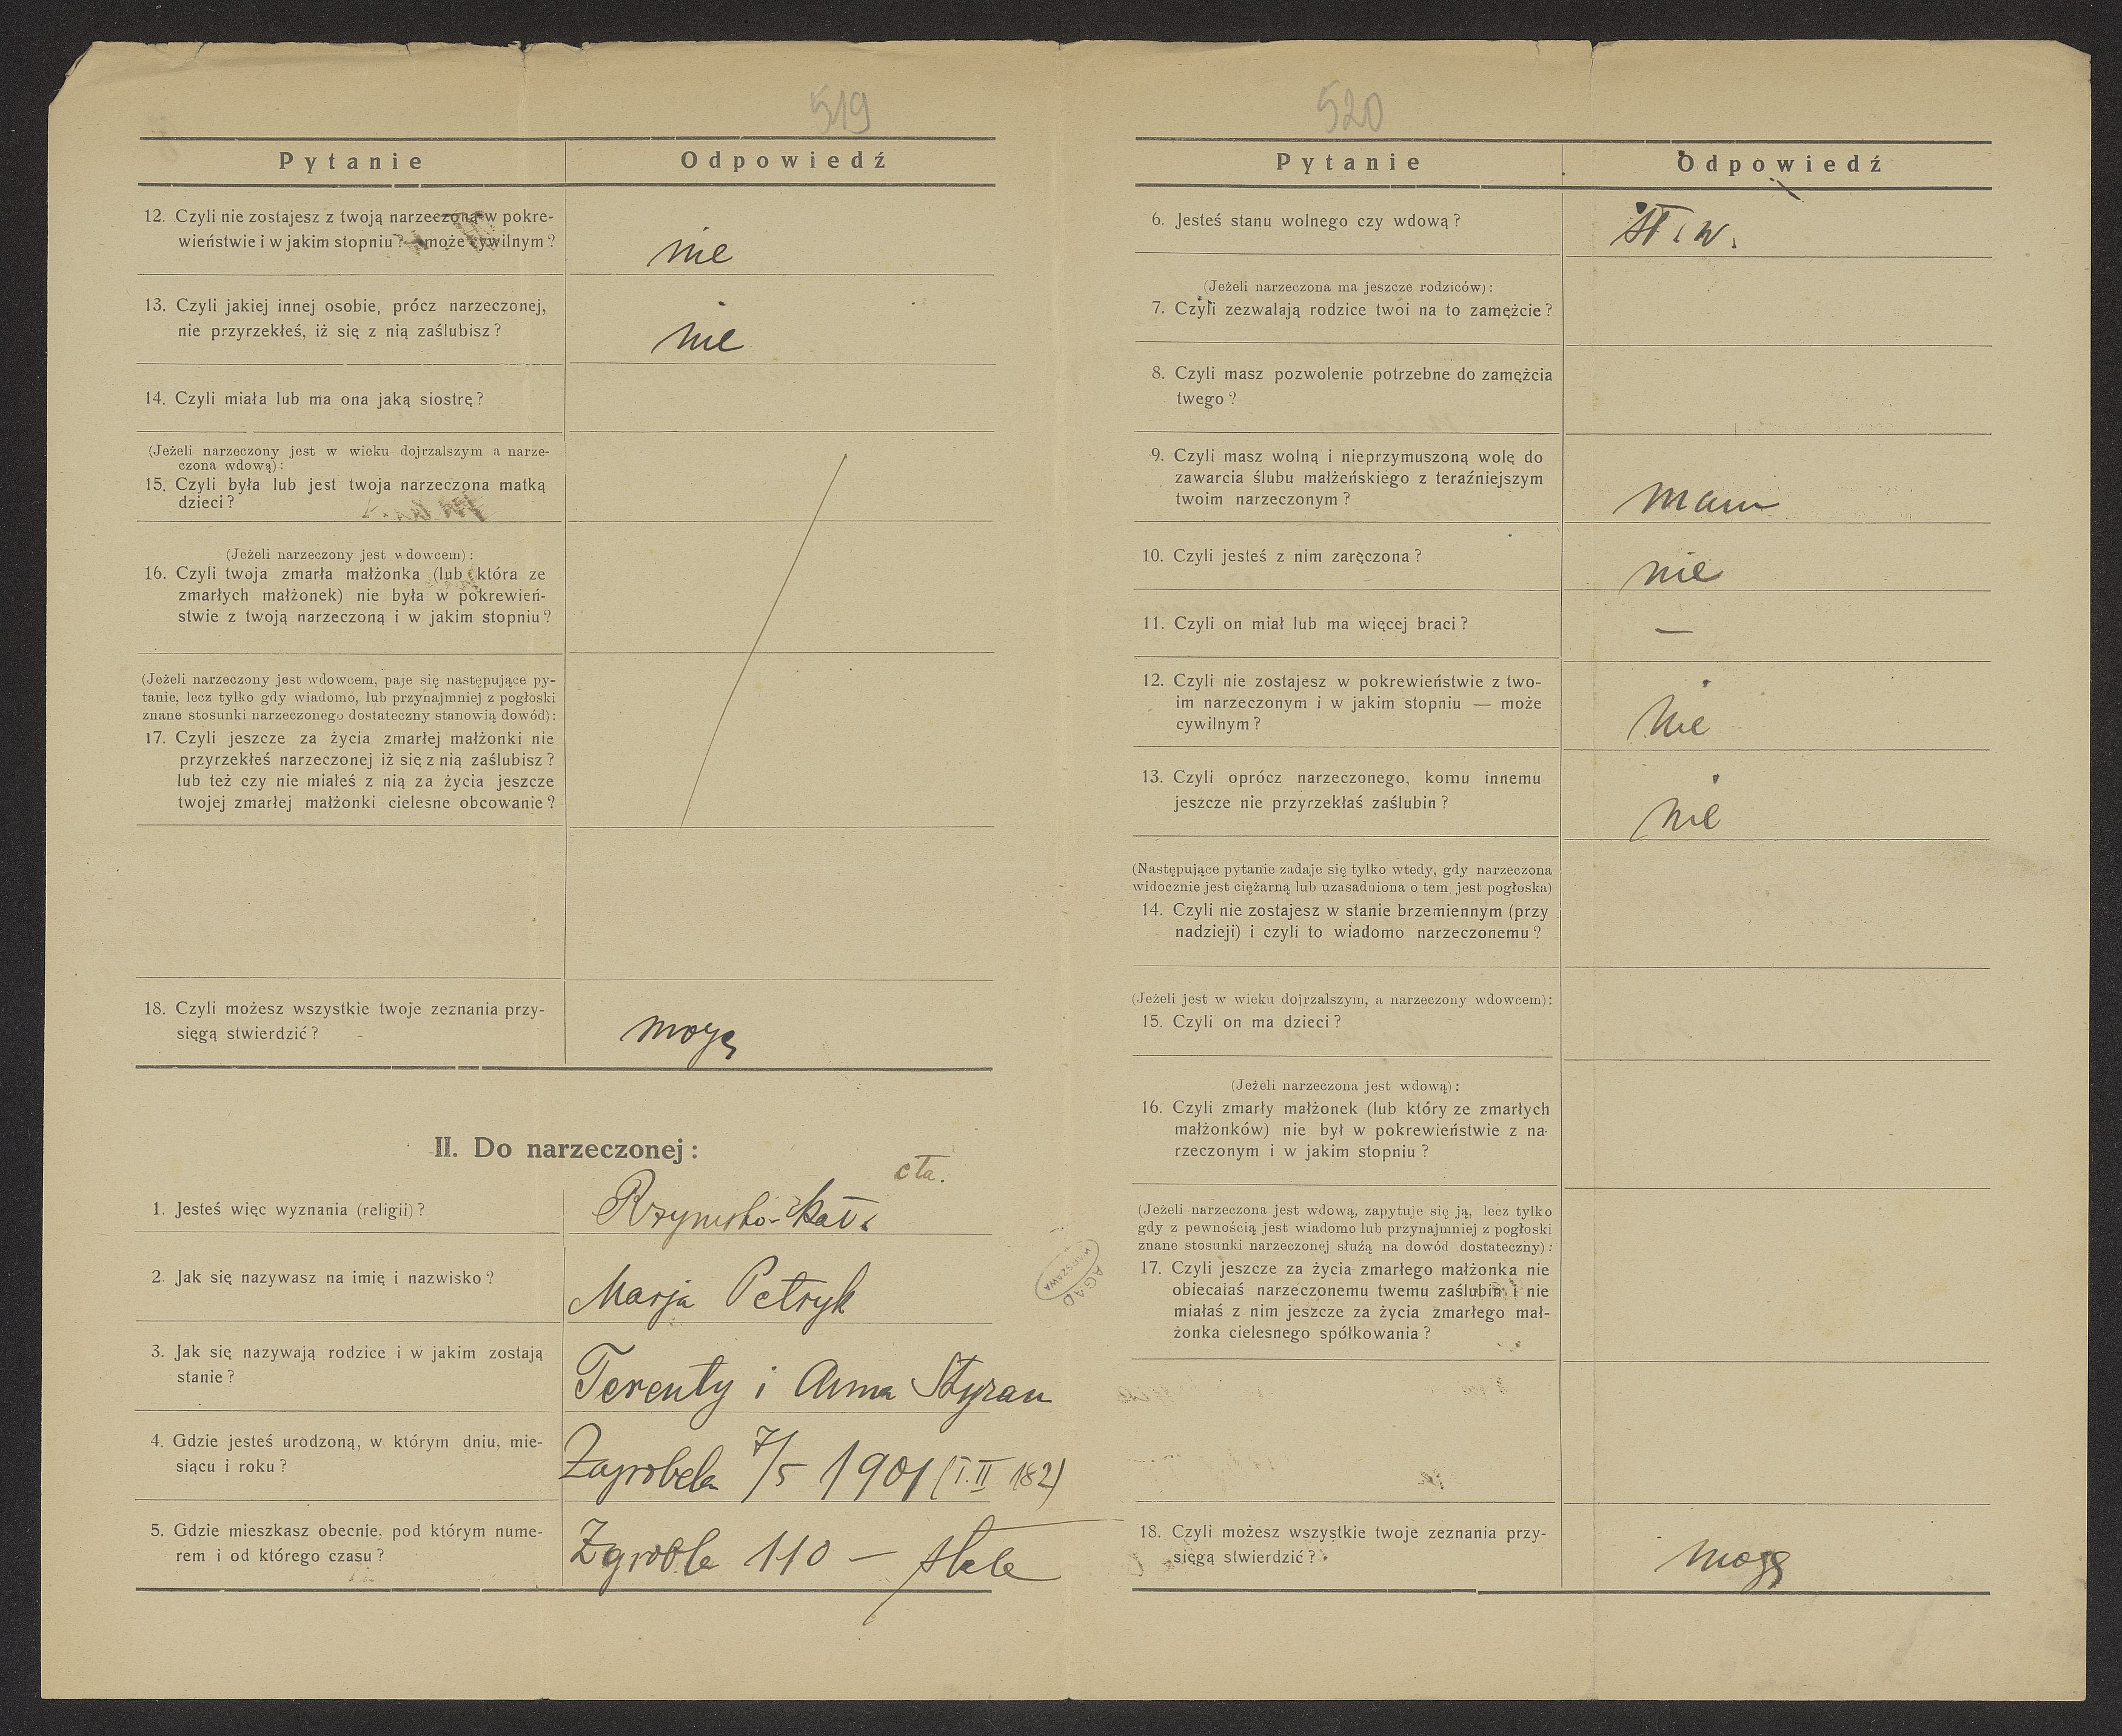 519
Pytanie Odpowiedź
12. Czyli nie zostajesz z twoją narzeczoną w pokre-
wieństwie i w jakim stopniu? — może cywilnym?
nie
13. Czyli jakiej innej osobie, prócz narzeczonej,
nie przyrzekłeś, iż się z nią zaślubisz?
nie
14. Czyli miała lub ma ona jaką siostrę?
(Jeżeli narzeczony jest w wieku dojrzalszym a narze-
czona wdową):
15. Czyli była lub jest twoja narzeczona matką
dzieci?
(Jeżeli narzeczony jest wdowcem):
16. Czyli twoja zmarła małżonka (lub która ze
zmarłych małżonek) nie była w pokrewień-
stwie z twoją narzeczoną i w jakim stopniu?
(Jeżeli narzeczony jest wdowcem, paje się następujące py-
tanie, lecz tylko gdy wiadomo, lub przynajmniej z pogłoski
znane stosunki narzeczonego dostateczny stanowią dowód):
17. Czyli jeszcze za życia zmarłej małżonki nie
przyrzekłeś narzeczonej iż się z nią zaślubisz?
lub też czy nie miałeś z nią za życia jeszcze
twojej zmarłej małżonki cielesne obcowanie?
18. Czyli możesz wszystkie twoje zeznania przy-
sięgą stwierdzić?
mogę
II. Do narzeczonej:
cta.
1. Jesteś więc wyznania (religii)?
Rzymsko-kat.
2. Jak się nazywasz na imię i nazwisko?
Marja Petryk
3. Jak się nazywają rodzice i w jakim zostają
stanie?
Terenty i Anna Styran
4. Gdzie jesteś urodzoną, w którym dniu, mie-
siącu i roku?
Zagrobela 7/5 1901 (T. II 182)
5. Gdzie mieszkasz obecnie, pod którym nume-
rem i od którego czasu?
Zgrobla 110 — stale
AGAD
WARSZAWA
520
Pytanie Odpowiedź
6. Jesteś stanu wolnego czy wdową?
st. w.
(Jeżeli narzeczona ma jeszcze rodziców):
7. Czyli zezwalają rodzice twoi na to zamężcie?
8. Czyli masz pozwolenie potrzebne do zamężcia
twego?
9. Czyli masz wolną i nieprzymuszoną wolę do
zawarcia ślubu małżeńskiego z teraźniejszym
twoim narzeczonym?
mam
10. Czyli jesteś z nim zaręczona?
nie
11. Czyli on miał lub ma więcej braci?
—
12. Czyli nie zostajesz w pokrewieństwie z two-
im narzeczonym i w jakim stopniu — może
cywilnym?
nie
13. Czyli oprócz narzeczonego, komu innemu
jeszcze nie przyrzekłaś zaślubin?
nie
(Następujące pytanie zadaje się tylko wtedy, gdy narzeczona
widocznie jest ciężarną lub uzasadniona o tem jest pogłoska)
14. Czyli nie zostajesz w stanie brzemiennym (przy
nadzieji) i czyli to wiadomo narzeczonemu?
(Jeżeli jest w wieku dojrzalszym, a narzeczony wdowcem):
15. Czyli on ma dzieci?
(Jeżeli narzeczona jest wdową):
16. Czyli zmarły małżonek (lub który ze zmarłych
małżonków) nie był w pokrewieństwie z na-
rzeczonym i w jakim stopniu?
(Jeżeli narzeczona jest wdową, zapytuje się ją, lecz tylko
gdy z pewnością jest wiadomo lub przynajmniej z pogłoski
znane stosunki narzeczonej służą na dowód dostateczny):
17. Czyli jeszcze za życia zmarłego małżonka nie
obiecałaś narzeczonemu twemu zaślubin i nie
miałaś z nim jeszcze za życia zmarłego mał-
żonka cielesnego spółkowania?
18. Czyli możesz wszystkie twoje zeznania przy-
sięgą stwierdzić?
mogę